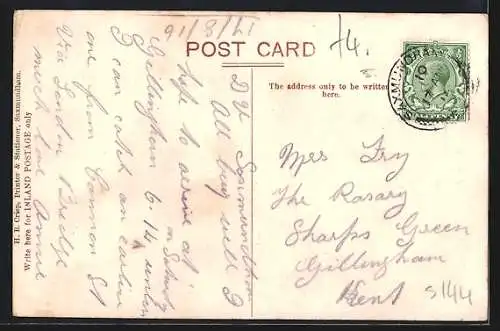 17/8/16
POST CARD
4.
SAXMUNDHAM
The address only to be written
here.
D V Saxmundham
All being well I
hope to arrive at
Gillingham 6.14 on Saturday unless
I can catch an earlier
one from Cannon St
Via London Bridge
much love Annie
Write here for INLAND POSTAGE only
H. R. Crisp, Printer & Stationer, Saxmundham.
Mrs Fry
The Rosary
Sharps Green
Gillingham
Kent
S144